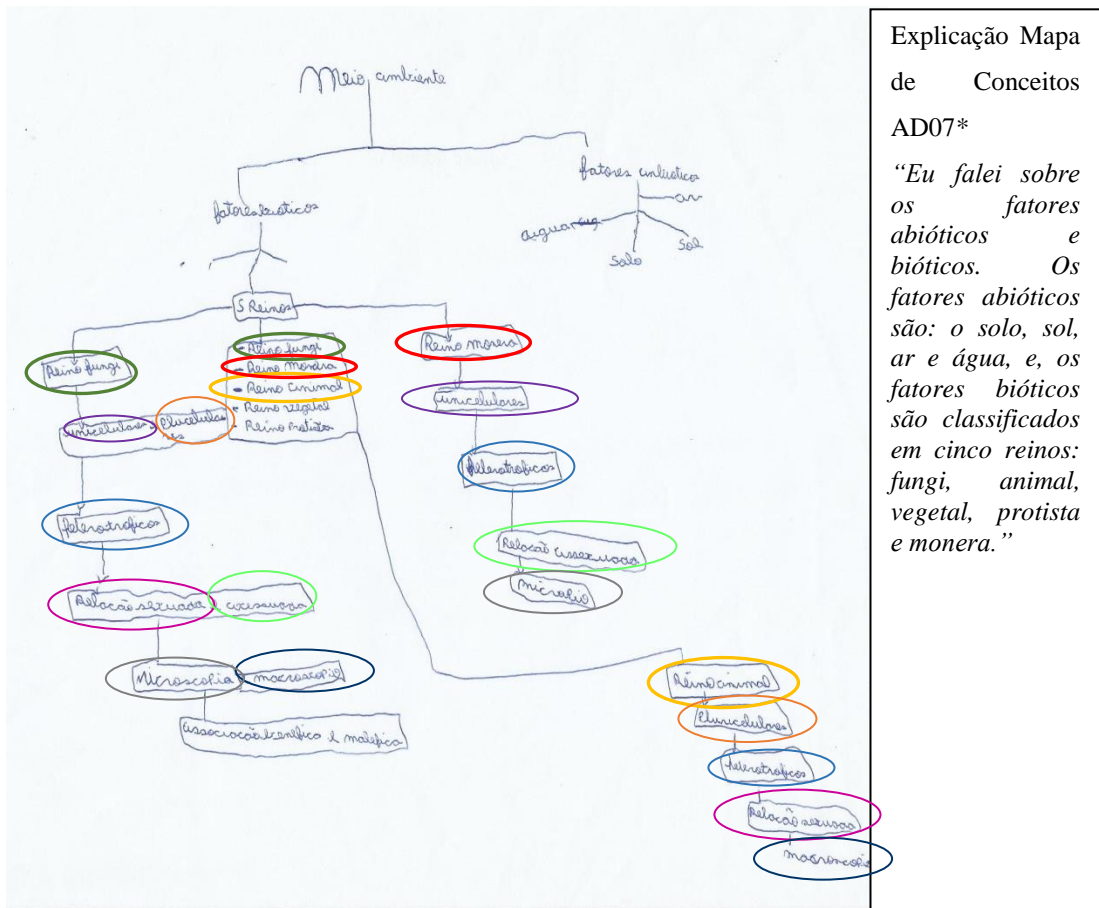 Meio ambiente
fatores bióticos
fatores abióticos
ar
água
Solo
Sol
5 Reinos
Reino fungi
- Reino fungi
- Reino Monera
- Reino Animal
- Reino vegetal
- Reino Protistas
Reino Monera
unicelulares
Pluricelula
res
unicelulares
Heterotroficos
Heterotroficos
Relacão sexuada e assexuada
Relacão assexuada
Microbio
Microscopia e macroscopia
associacão benefica e malefica
Reino animal
Pluricelulares
heterotroficos
Relacão sexuada
macroscopia
Explicação Mapa
de Conceitos
AD07*
“Eu falei sobre
os fatores
abióticos e
bióticos. Os
fatores abióticos
são: o solo, sol,
ar e água, e, os
fatores bióticos
são classificados
em cinco reinos:
fungi, animal,
vegetal, protista
e monera.”